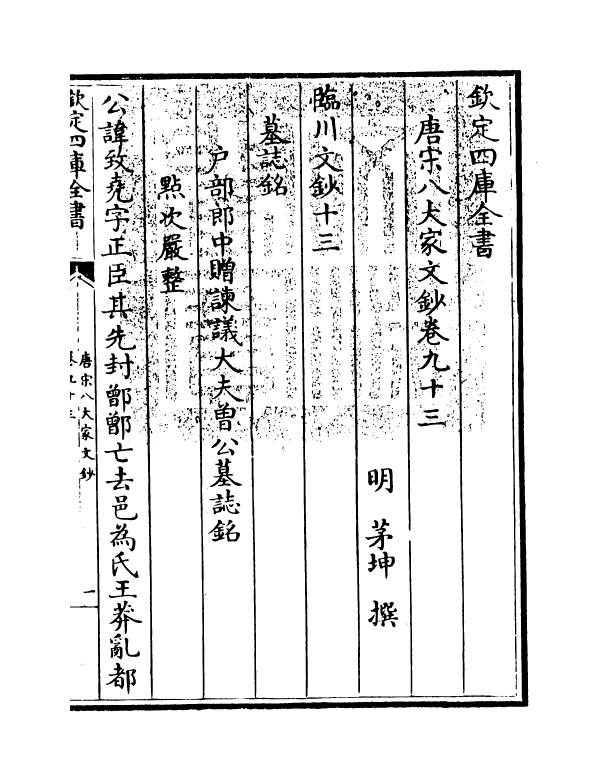 欽定四庫全書
唐宋八大家文鈔卷九十三
明 茅坤 撰
臨川文鈔十三
墓誌銘
戶部郎中贈諫議大夫曾公墓誌銘
點次嚴整
公諱致堯字正臣其先封鄫鄫亡去邑為氏王莽亂都
欽定四庫全書
唐宋八大家文鈔
卷九十三
一